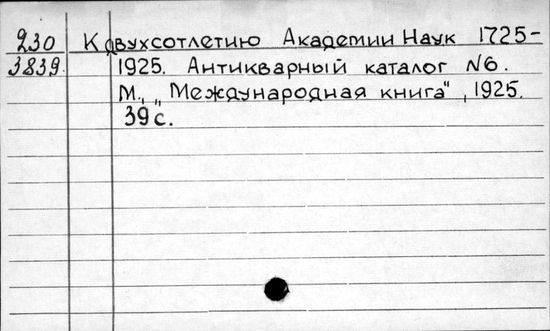 230 К двухсотлетию Академии Наук 1725-
3839. 1925. Антикварный каталог №6.
М., „Международная книга", 1925.
39 с.